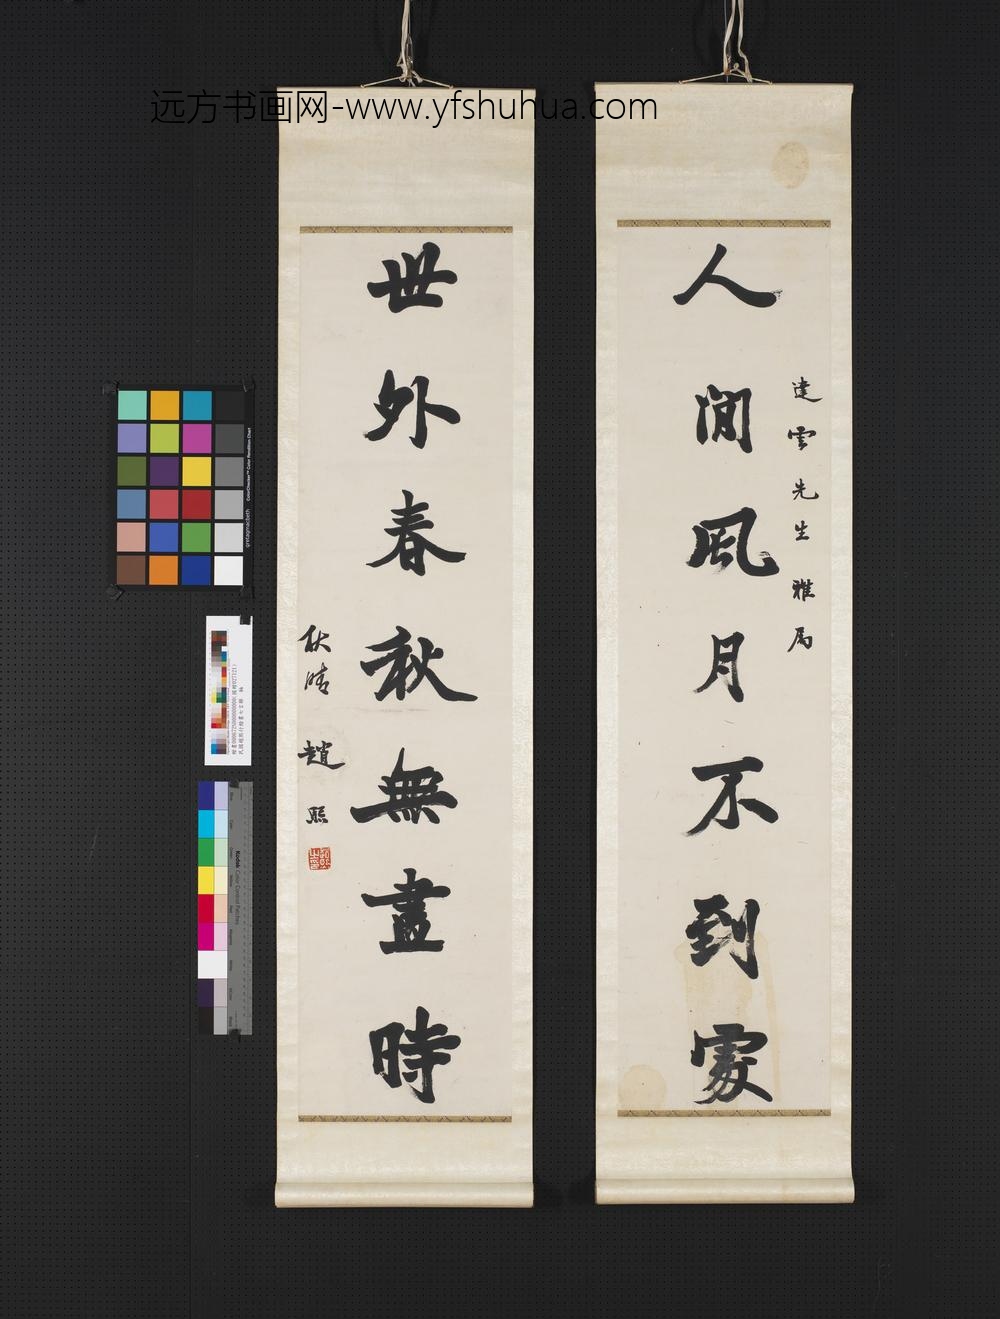 远方书画网-www.yfshuhua.com
人間風月不到處
達雲先生雅屬
世外春秋無盡時
趙熙